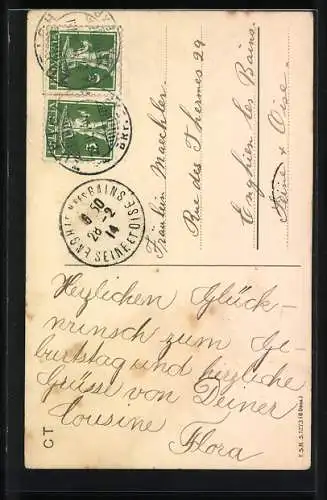 HELVETIA
HELVETIA
ENGHIEN LES BAINS
6 50
28-2
14
SEINE ET OISE
Fräulein Maechler
Rue des Thermes 29
Enghien les Bains
Seine & Oise
Herzlichen Glück-
wunsch zum Ge-
burtstag und herzliche
Grüsse von Deiner
Cousine
Flora
CT